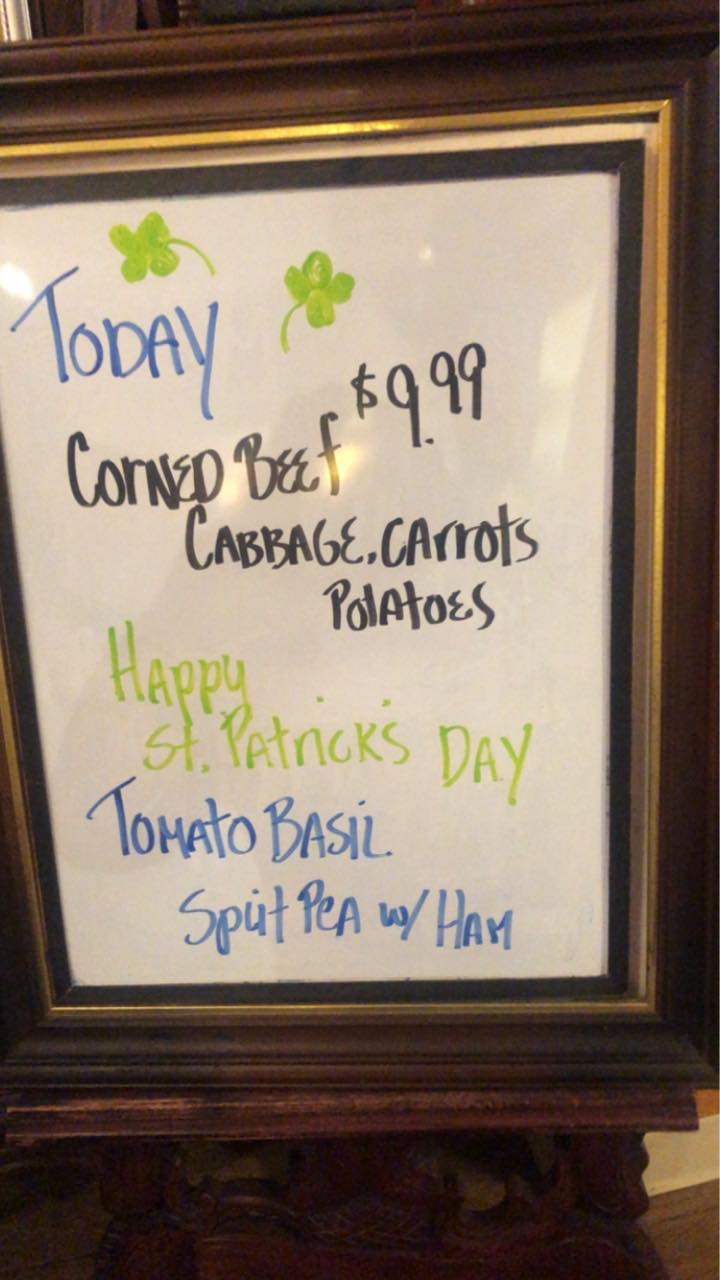 TODAY
$9.99
CORNED BEEF
CABBAGE, CARROTS
POTATOES
HAPPY
St. PATRICK'S DAY
TOMATO BASIL
Split PEA w/ HAM